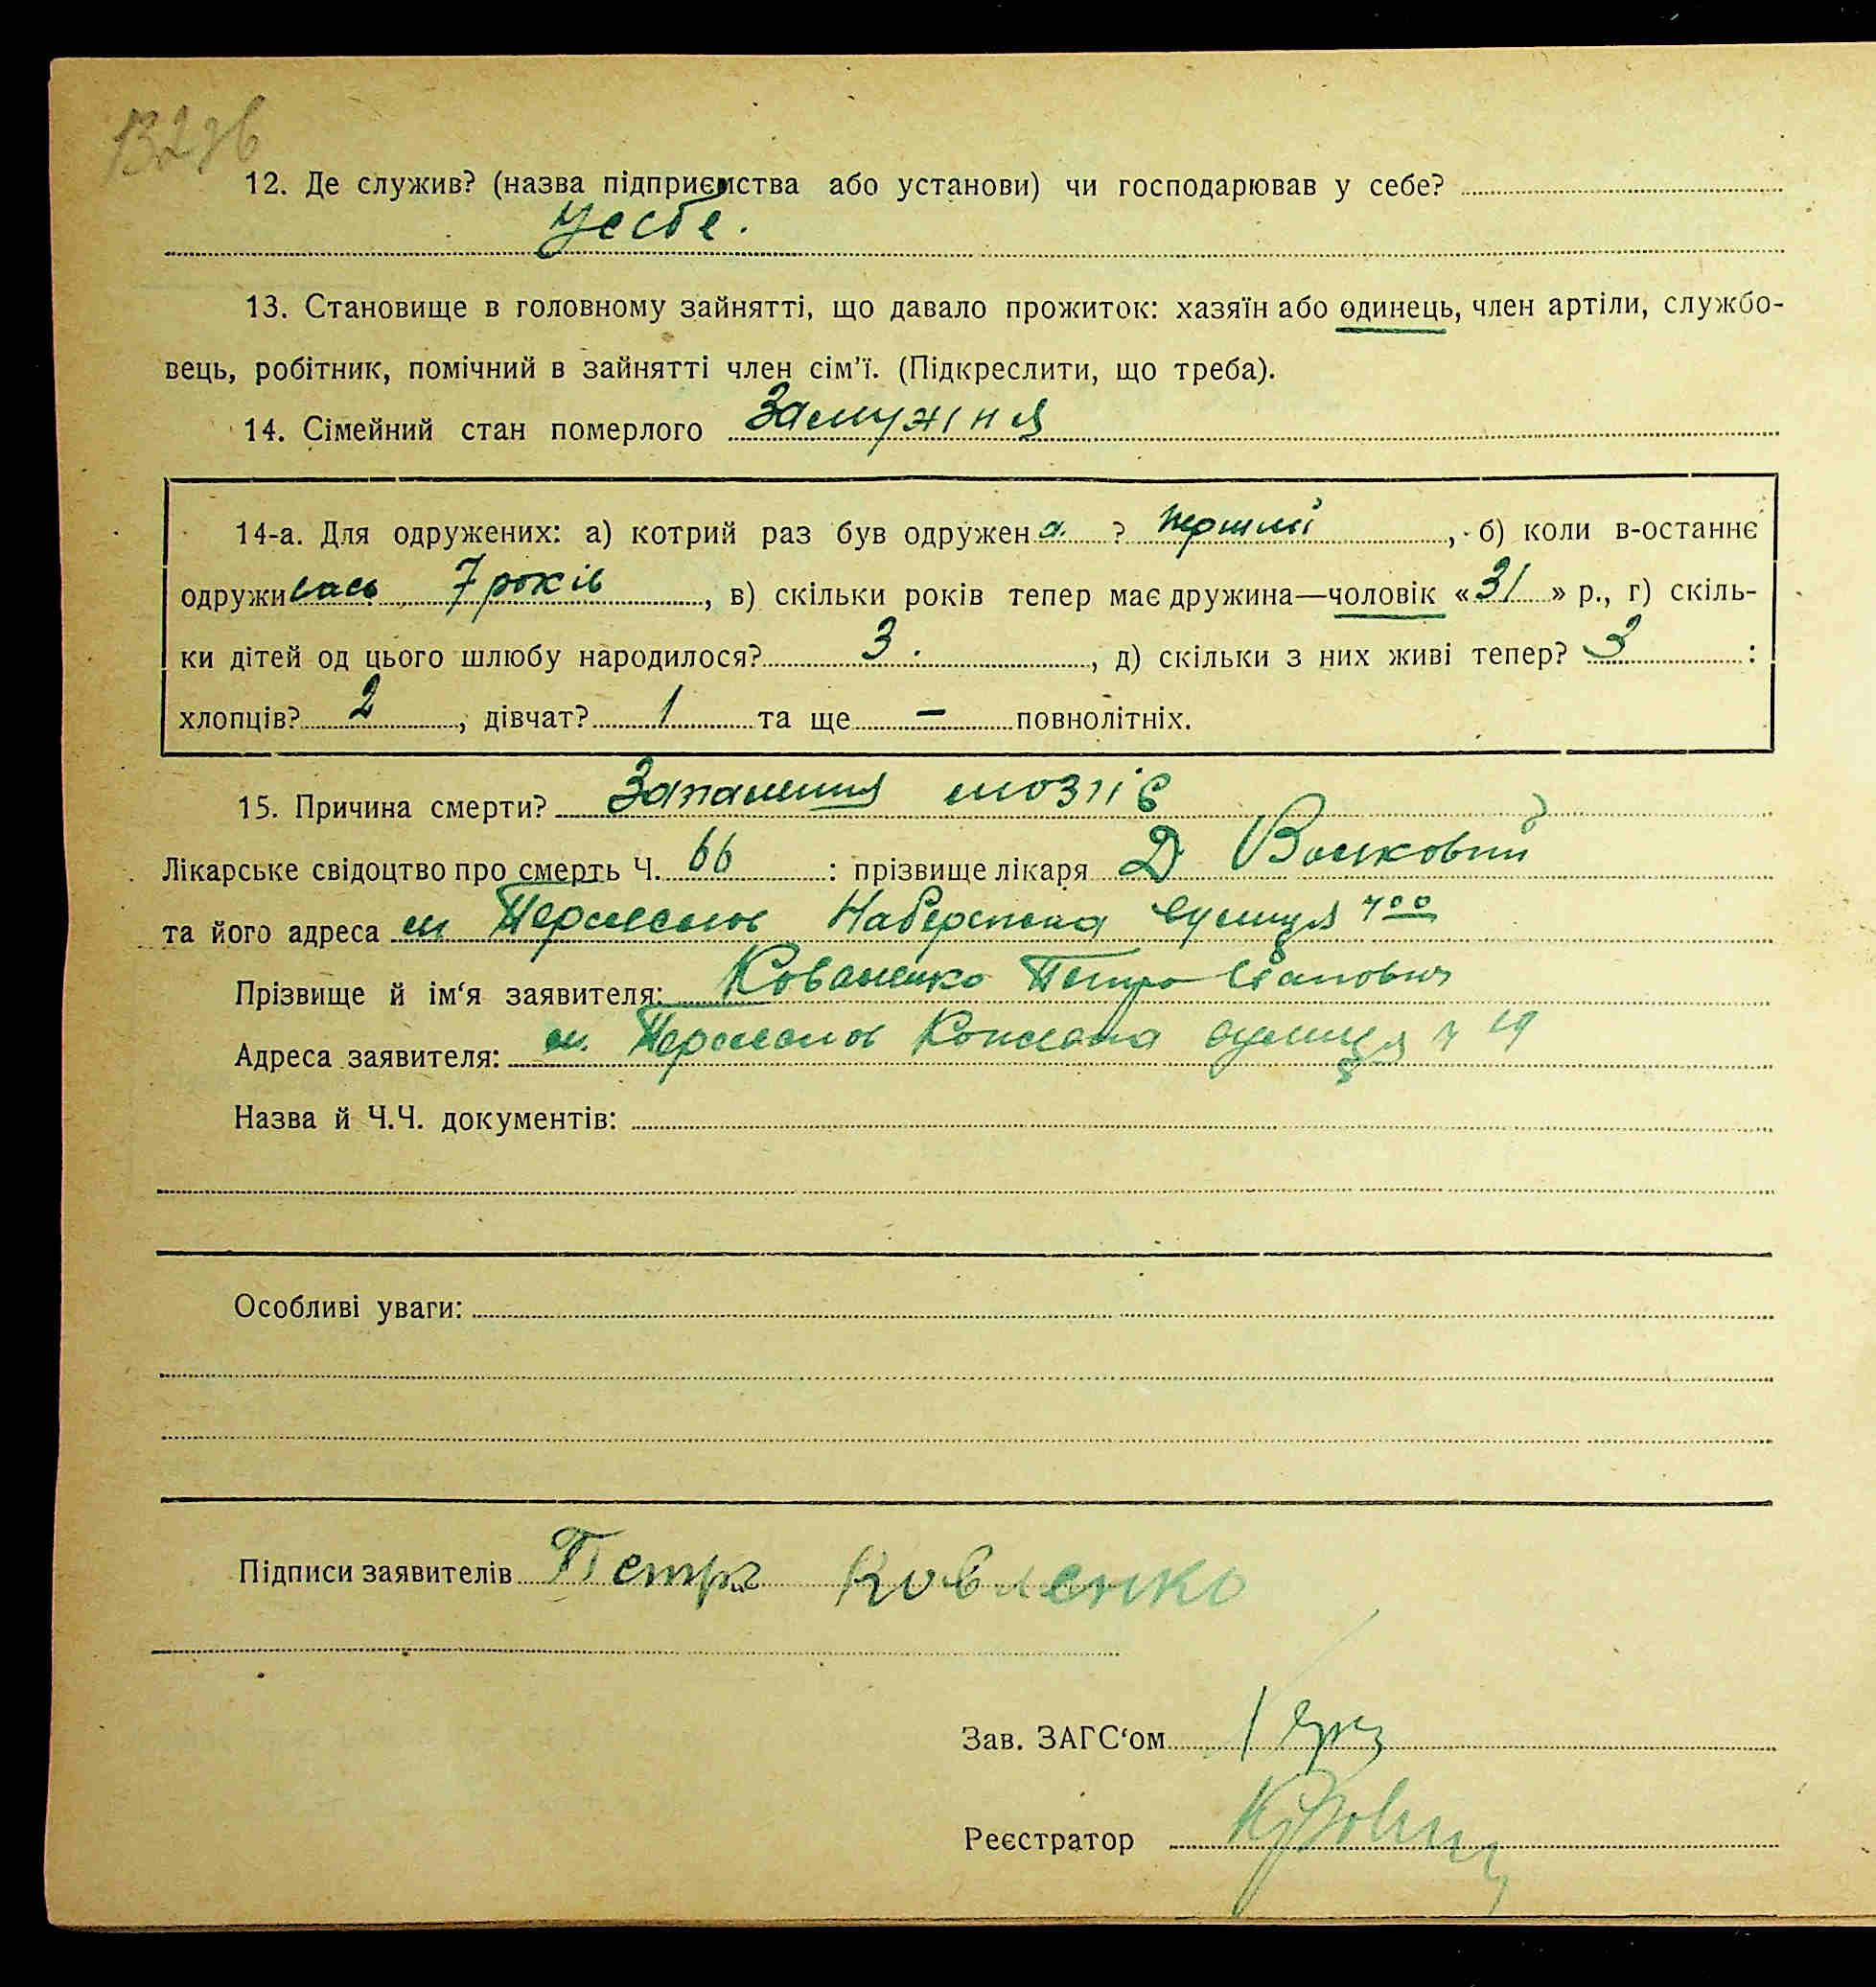 12. Де служив? (назва підприємства або установи) чи господарював у себе?
У себе.
13. Становище в головному зайнятті, що давало прожиток: хазяїн або одинець, член артіли, службо-
вець, робітник, помічний в зайнятті член сім'ї. (Підкреслити, що треба).
14. Сімейний стан померлого Замужня
14-а. Для одружених: а) котрий раз був одружен а ? перший, б) коли в-останнє
одружилась 7 років, в) скільки років тепер має дружина—чоловік «31» р., г) скіль-
ки дітей од цього шлюбу народилося? 3., д) скільки з них живі тепер? 3 :
хлопців? 2, дівчат? 1 та ще — повнолітніх.
15. Причина смерти? Запалення мозгів
Лікарське свідоцтво про смерть Ч. 66 : прізвище лікаря Д
та його адреса м вулиця
Прізвище й ім'я заявителя: Коваленко Петро
Адреса заявителя: м. вулиця ч 19
Назва й Ч.Ч. документів:
Особливі уваги:
Підписи заявителів Петро Ковленко
Зав. ЗАГС'ом
Реєстратор